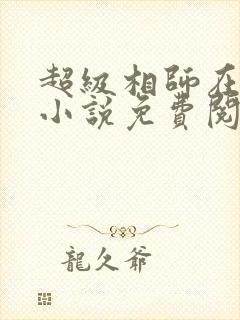 超級相師在
小說免費閱
龍久爺